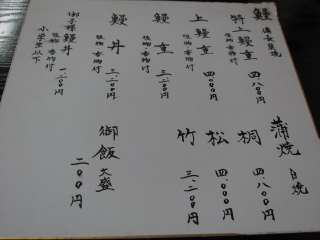 鰻 蒲焼 白焼
特上鰻重 四、八〇〇円
吸物 香物付
上鰻重 四、〇〇〇円
吸物 香物付
鰻重 三、二〇〇円
吸物 香物付
鰻丼 三、二〇〇円
吸物 香物付
御子様鰻丼 一、二〇〇円
小学生以下
蒲焼 白焼
桐 四、八〇〇円
松 四、〇〇〇円
竹 三、二〇〇円
御飯大盛 二〇〇円